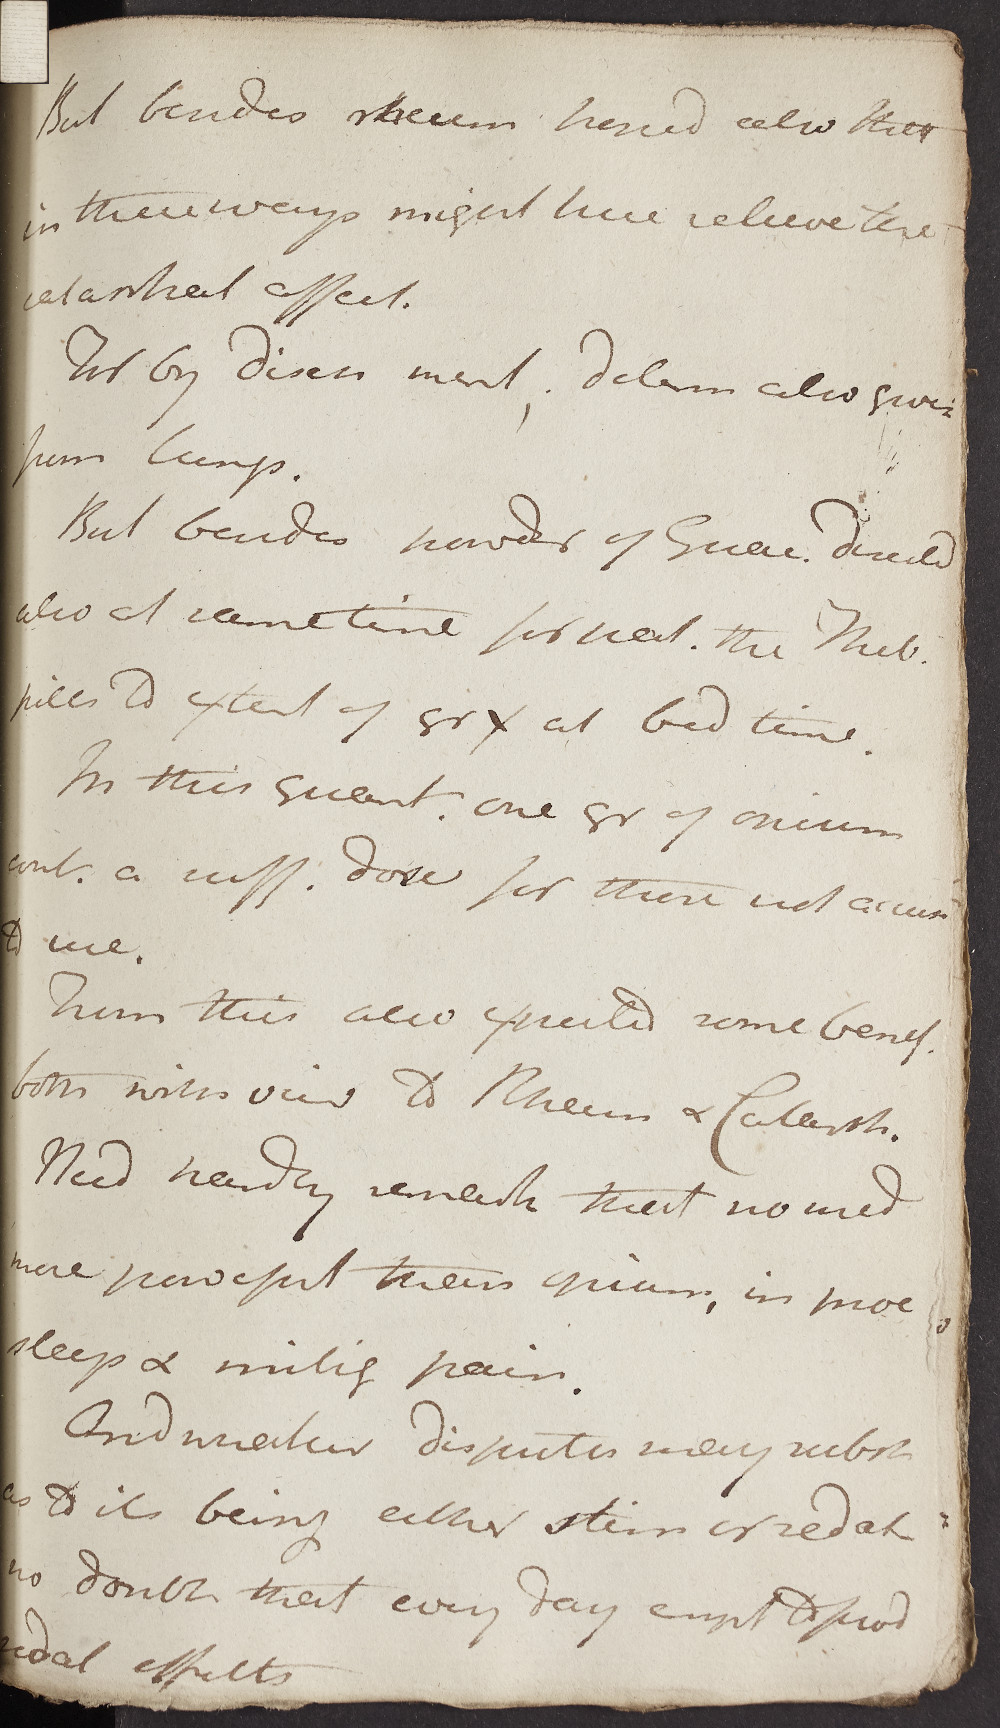 But besides rheum hoped also that
in three ways might here relieve the
catarrhal affect.
For by discuss ment, determ also given
from lungs.
But besides powder of Guac. directed
also at same time for pect. the Theb.
pills to extent of gr x at bed time.
In this quant. one gr of opium
cont. a suff. dose for those not accus
to use.
From this also expected some benef.
both with view to Rheum & Catarrh.
Need hardly remark that no med
more powerful than opium, in proc
sleep & mitig pain.
And whatever disputes may subsis
as to its being either stim or sedat
no doubt that every day empl to prod
sedat effects